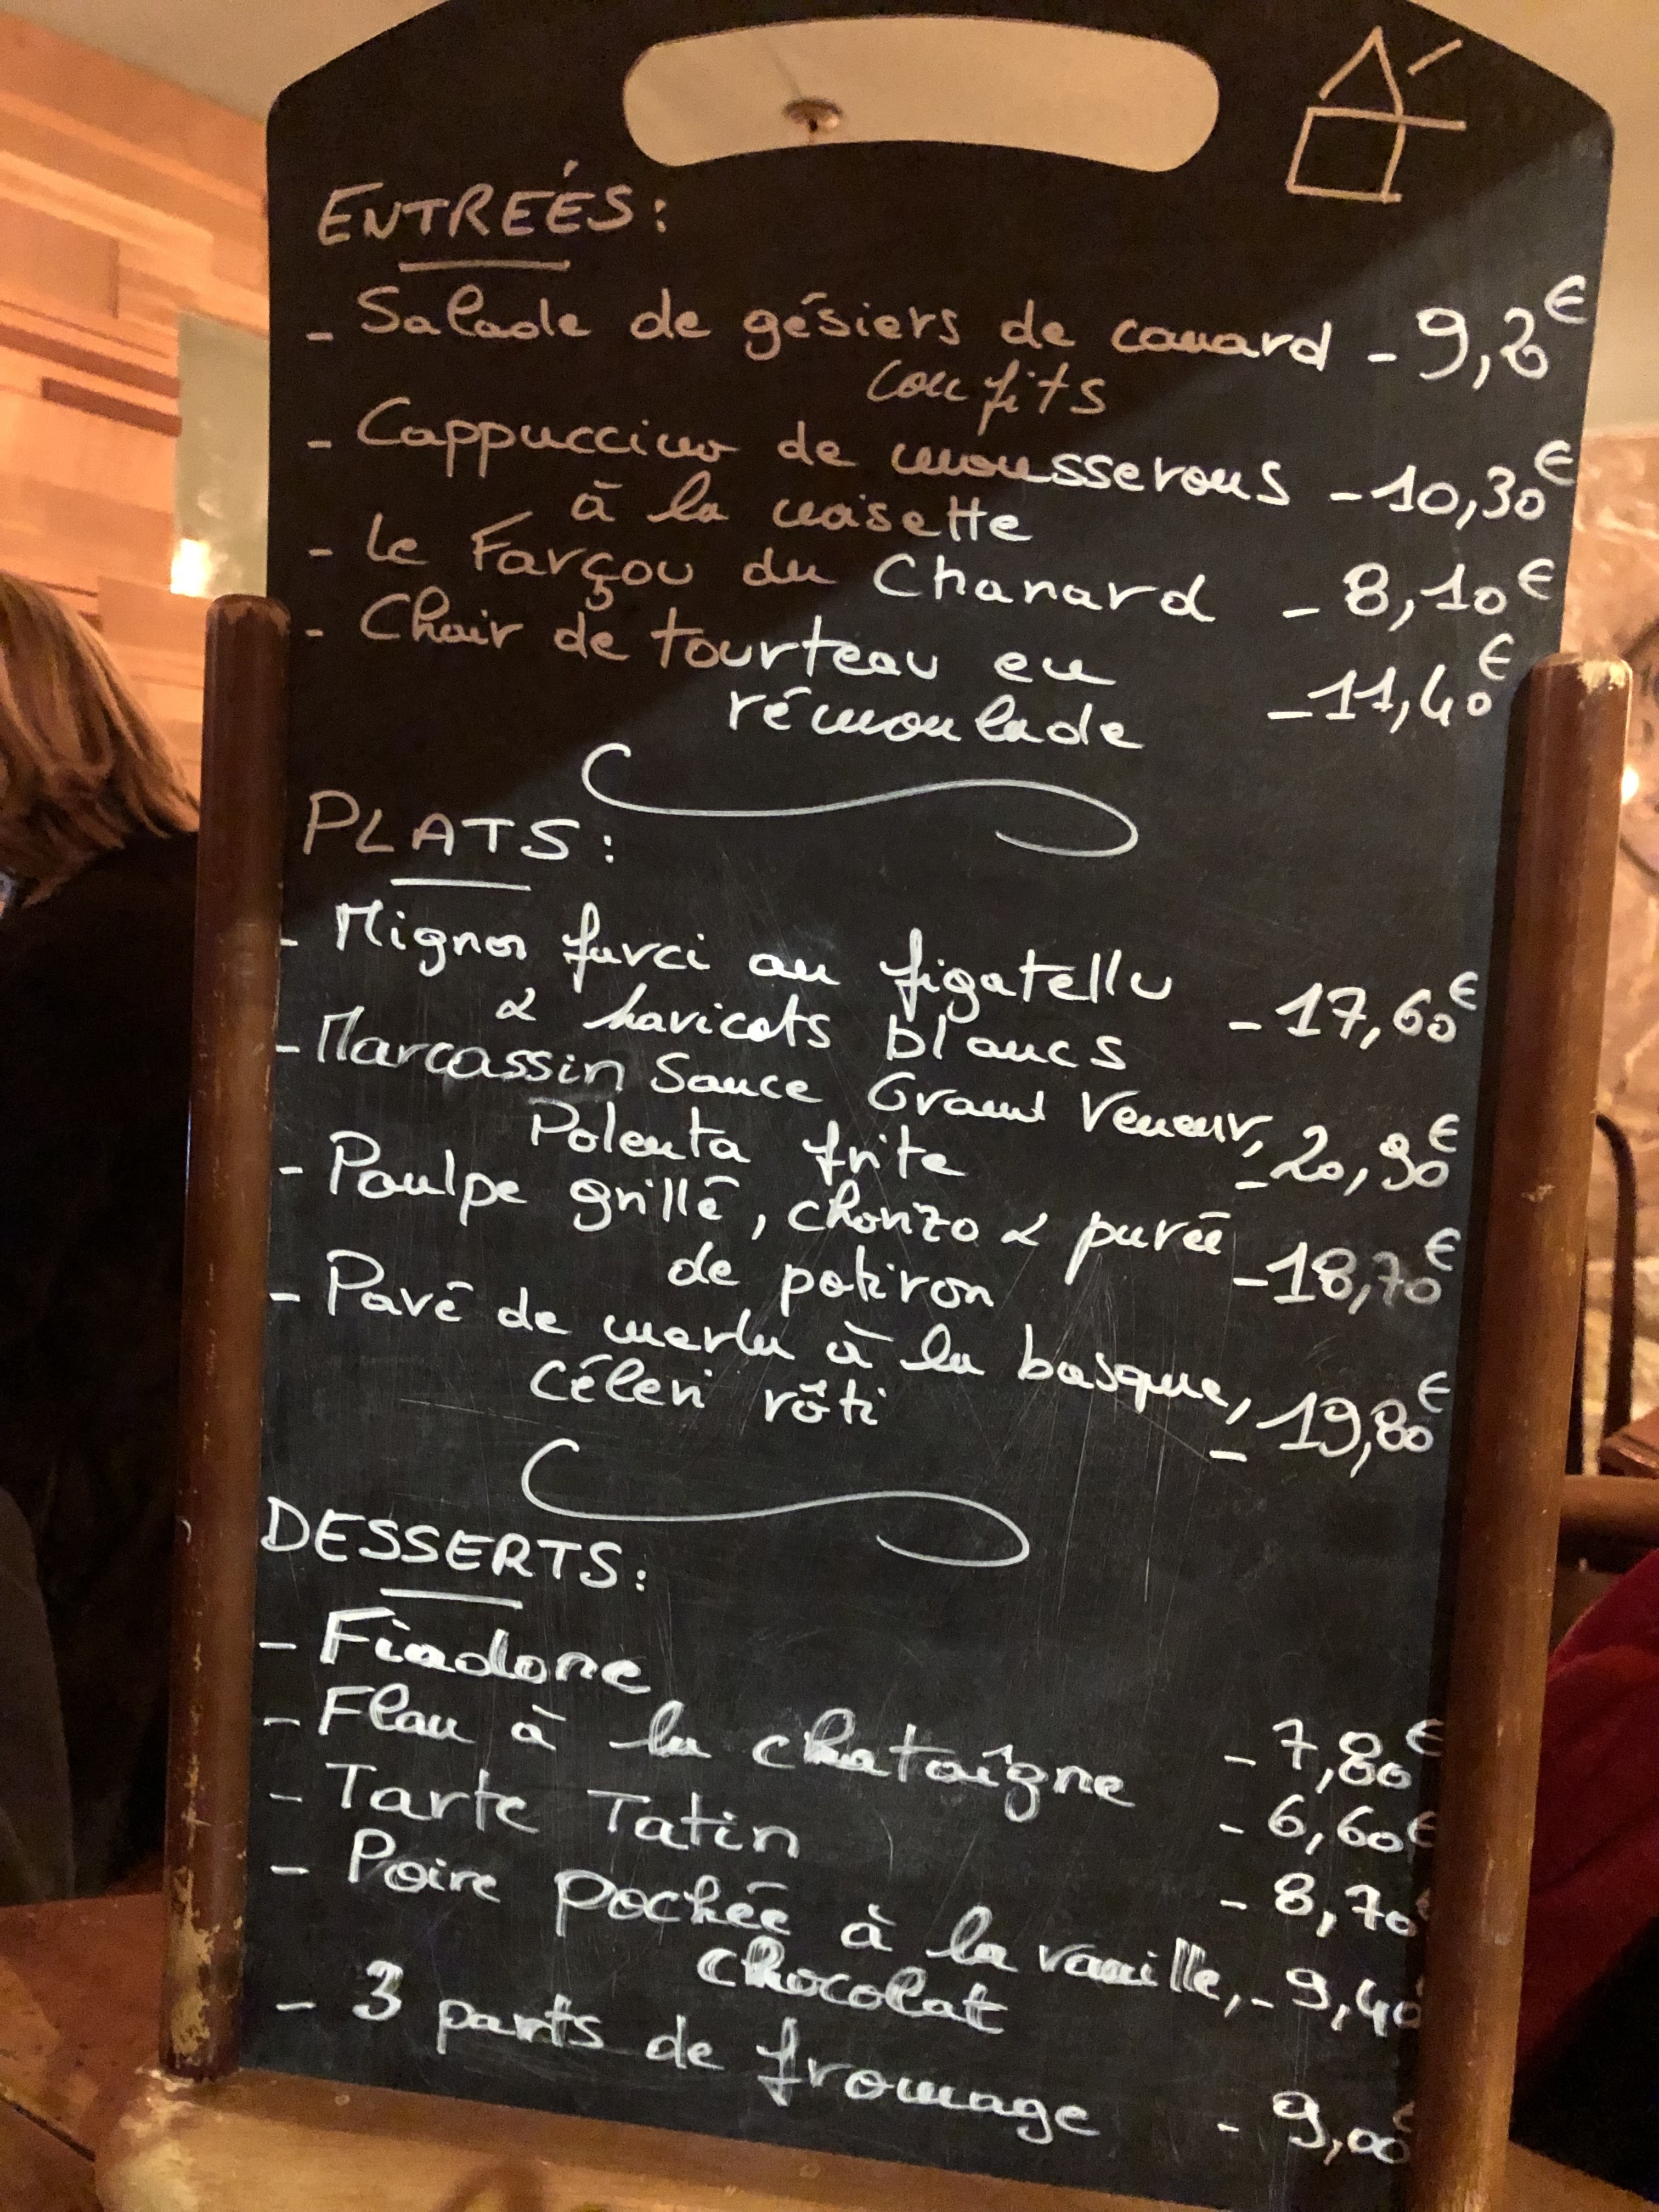 ENTREÉS:
- Salade de gésiers de canard - 9,2€
confits
- Cappuccino de mousserons - 10,30€
à la noisette
- Le Farçou du Chanard - 8,10€
- Chair de tourteau en
rémoulade - 11,40€
PLATS:
- Mignon farci au figatellu
& haricots blancs - 17,60€
- Marcassin Sauce Grand Veneur,
Polenta frite - 20,90€
- Poulpe grillé, chorizo & purée
de potiron - 18,70€
- Pavé de merlu à la basque,
Céleri rôti - 19,80€
DESSERTS:
- Fiadone - 7,80€
- Flan à la chataîgne - 6,60€
- Tarte Tatin - 8,70€
- Poire pochée à la vanille, - 9,40
chocolat
- 3 parts de fromage - 9,00€